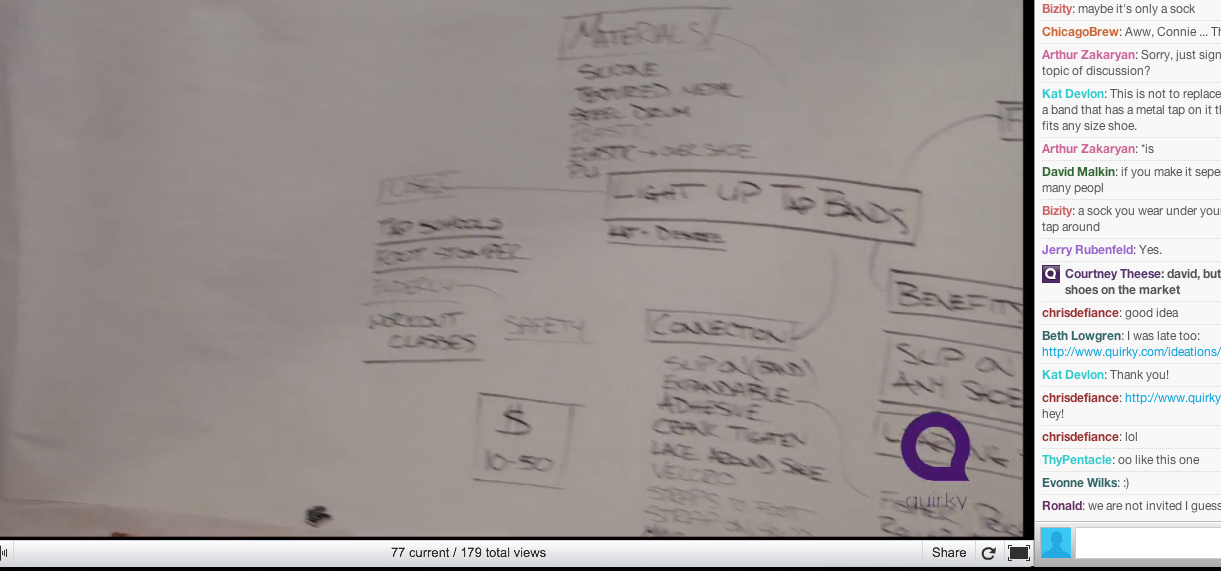 MATERIALS
SILICONE
TEXTURED METAL
STEEL DRUM
PLASTIC
ELASTIC → OVER SHOE
PU
USE
TAP SCHOOLS
FOOT STOMPER
ELDERLY
WORKOUT
CLASSES
SAFETY
LIGHT UP TAP BANDS
$
10-50
CONNECTION
SLIP ON (BAND)
EXPANDABLE
ADHESIVE
CRANK TIGHTEN
LACE AROUND SHOE
VELCRO
BENEFITS
SLIP ON
ANY SHOE
quirky
77 current / 179 total views
Share
Bizity: maybe it's only a sock
ChicagoBrew: Aww, Connie ... Th
Arthur Zakaryan: Sorry, just sign
topic of discussion?
Kat Devlon: This is not to replace
a band that has a metal tap on it th
fits any size shoe.
Arthur Zakaryan: *is
David Malkin: if you make it sepe
many peopl
Bizity: a sock you wear under you
tap around
Jerry Rubenfeld: Yes.
Courtney Theese: david, but
shoes on the market
chrisdefiance: good idea
Beth Lowgren: I was late too:
http://www.quirky.com/ideations/
Kat Devlon: Thank you!
chrisdefiance: http://www.quirky
hey!
chrisdefiance: lol
ThyPentacle: oo like this one
Evonne Wilks: :)
Ronald: we are not invited I guess